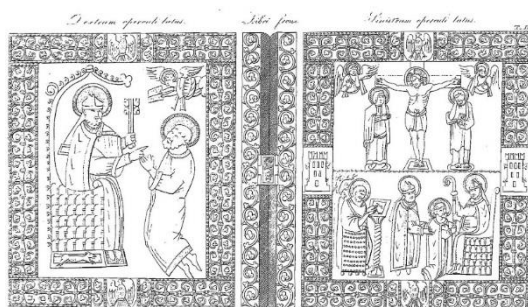 Dextrum operculi latus.
Libri frons
Sinistrum operculi latus.